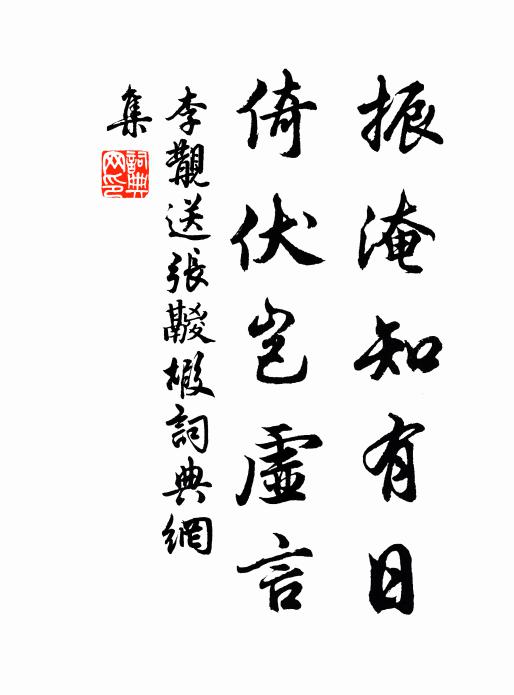 振淹知有日
倚伏岂虛言
李觀送張
椴詞典網
集
詞典网印